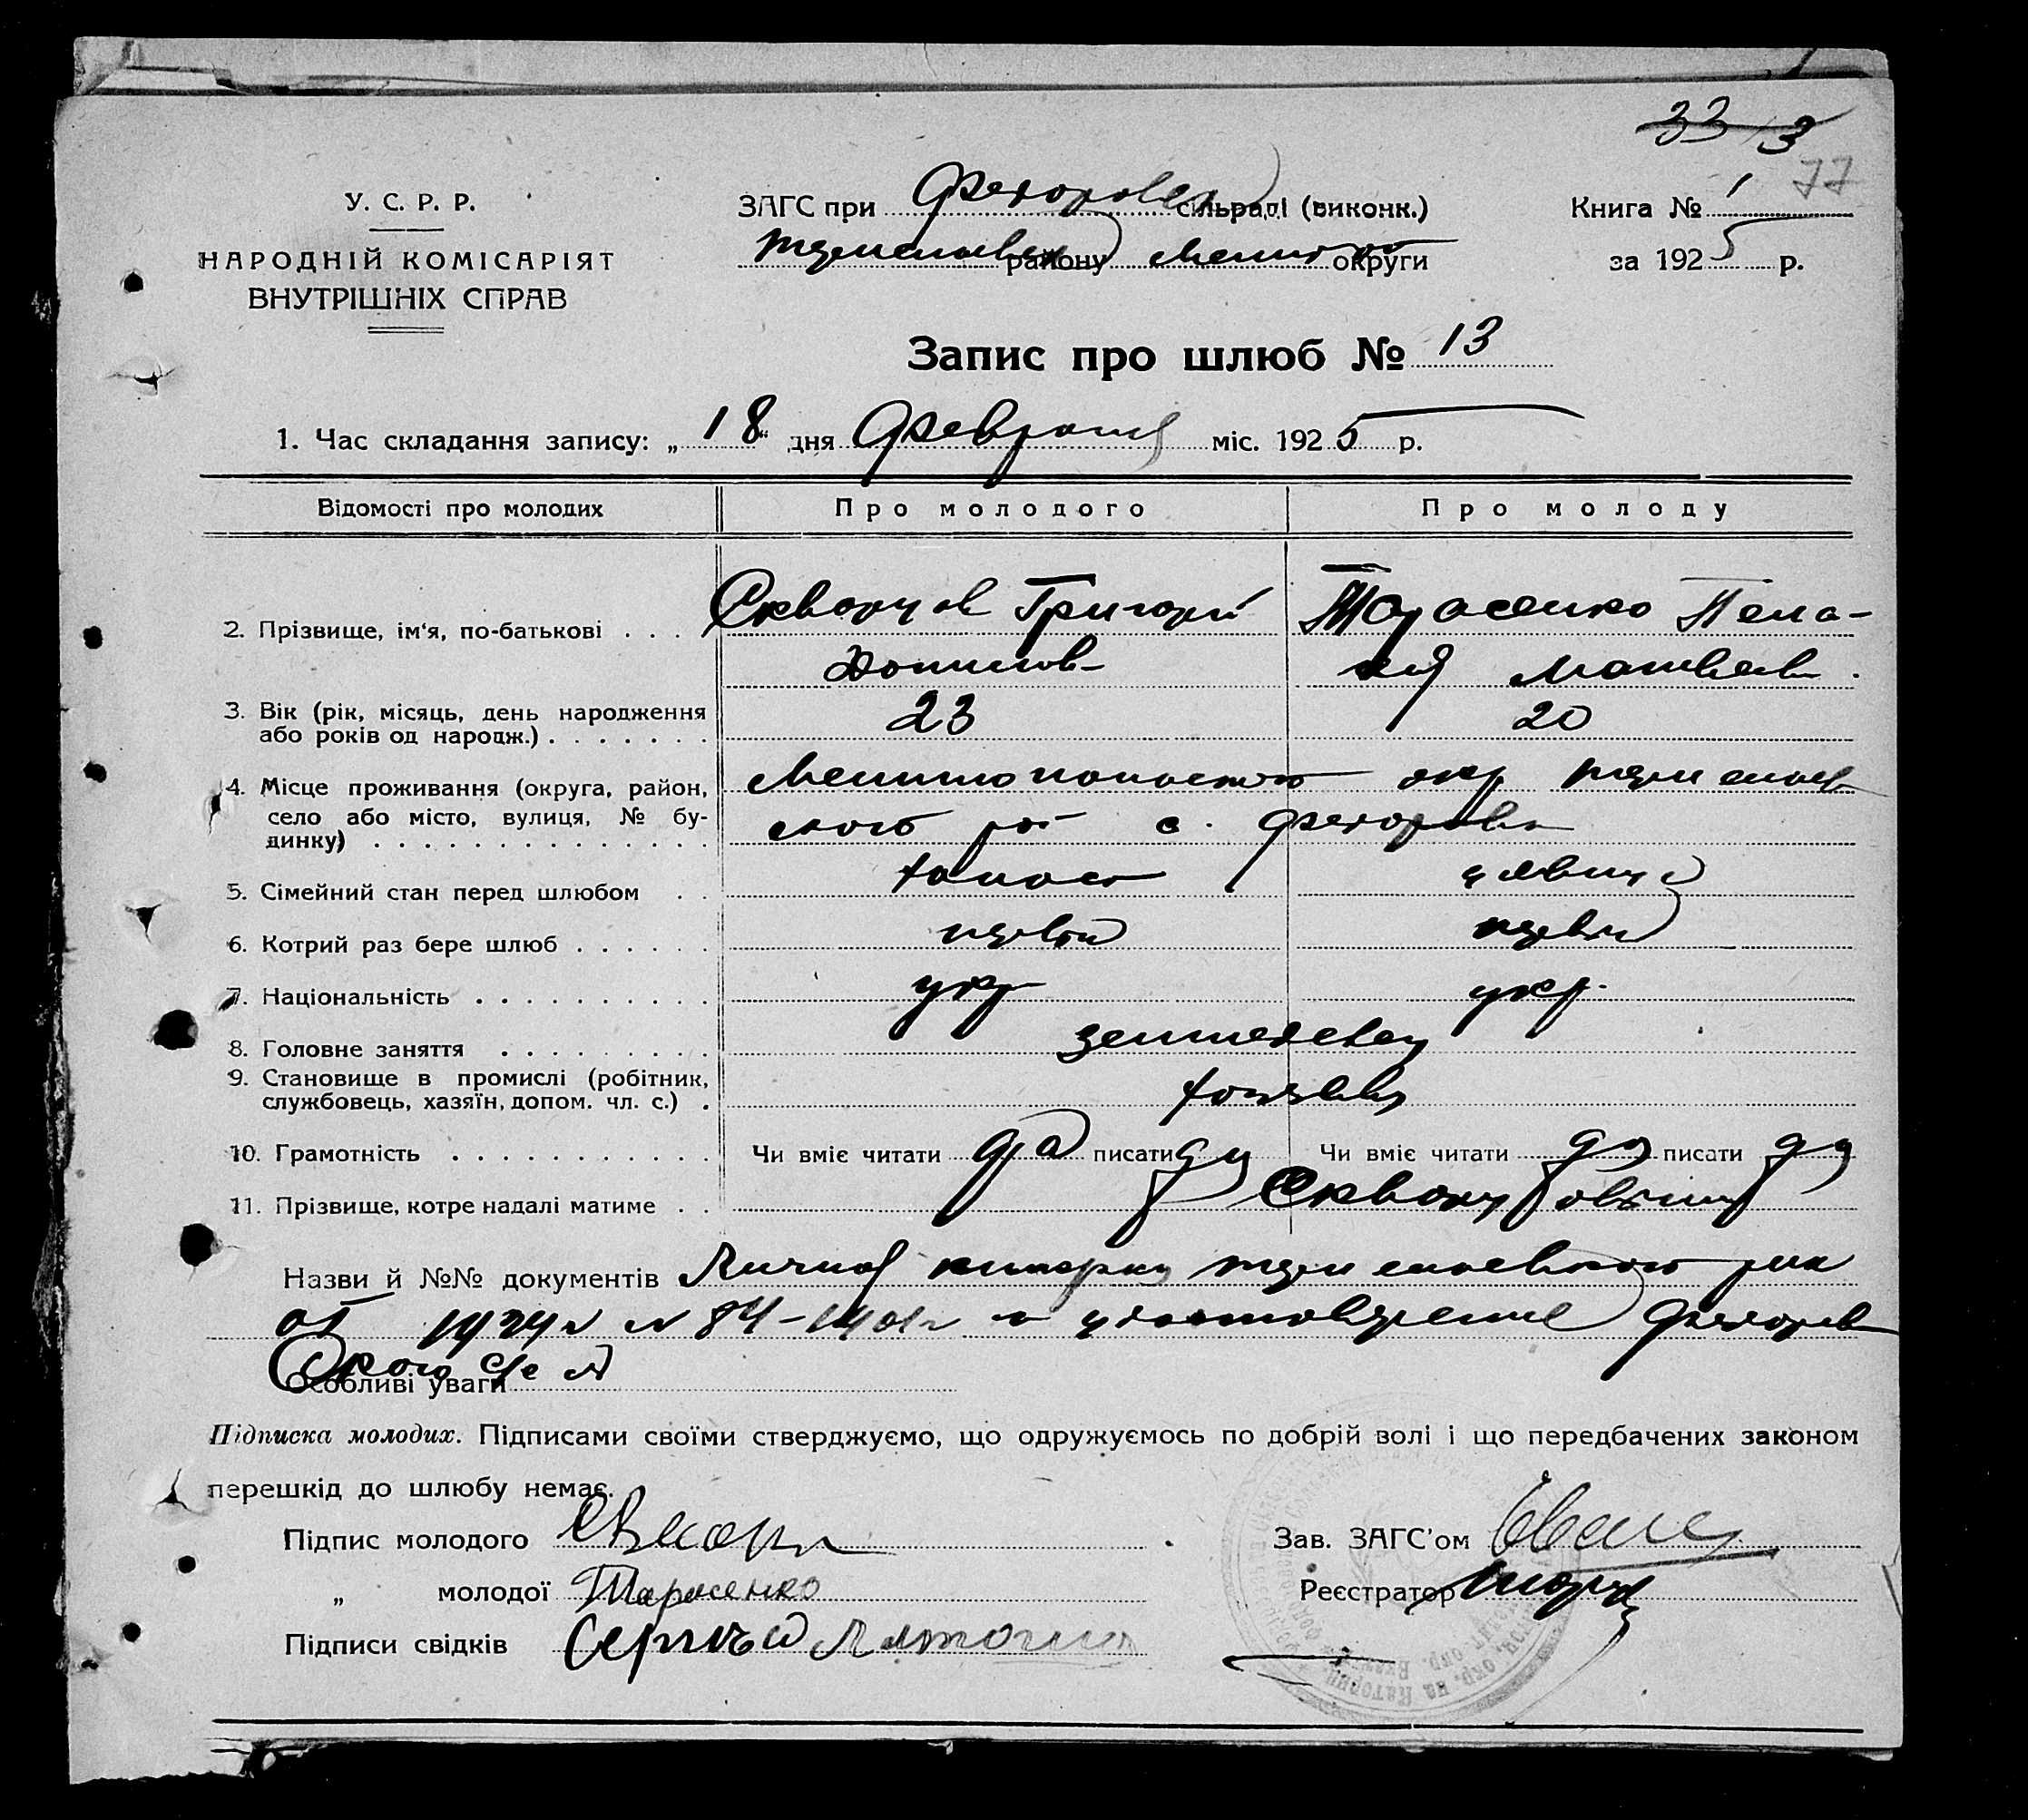 33 3
77
У. С. Р. Р.
НАРОДНІЙ КОМІСАРІЯТ
ВНУТРІШНІХ СПРАВ
ЗАГС при Федоровск сільраді (виконк.)
району Мелит округи
Книга № 1
за 1925 р.
Запис про шлюб № 13
1. Час складання запису: „ 18 " дня Февраля міс. 1925 р.
Відомості про молодих Про молодого Про молоду
2. Прізвище, ім'я, по-батькові . . . Скворцов Григорий Тарасенко Пела-
гия Матвеев.
3. Вік (рік, місяць, день народження 23 20
або років од народж.) . . . . . . .
4. Місце проживання (округа, район, Мелитопольского окр
село або місто, вулиця, № бу- ского с. Федоровка
динку) . . . . . . . . . . . . . .
5. Сімейний стан перед шлюбом . . холост девица
6. Котрий раз бере шлюб . . . . . . первый первый
7. Національність . . . . . . . . . . укр укр.
8. Головне заняття . . . . . . . . . земледелец
9. Становище в промислі (робітник,
службовець, хазяїн, допом. чл. с.) . хозяева
10. Грамотність . . . . . . . . . . . Чи вміє читати да писати да Чи вміє читати да писати да
11. Прізвище, котре надалі матиме . . Скворцовыми
Назви й №№ документів Личная рик
от 1924 г № 84 и удостоверение Федоров
ского с/с
Особливі уваги
Підписка молодих. Підписами своїми стверджуємо, що одружуємось по добрій волі і що передбачених законом
перешкід до шлюбу немає.
Підпис молодого
„ молодої Тарасенко
Підписи свідків Сергей
Зав. ЗАГС'ом
Реєстратор